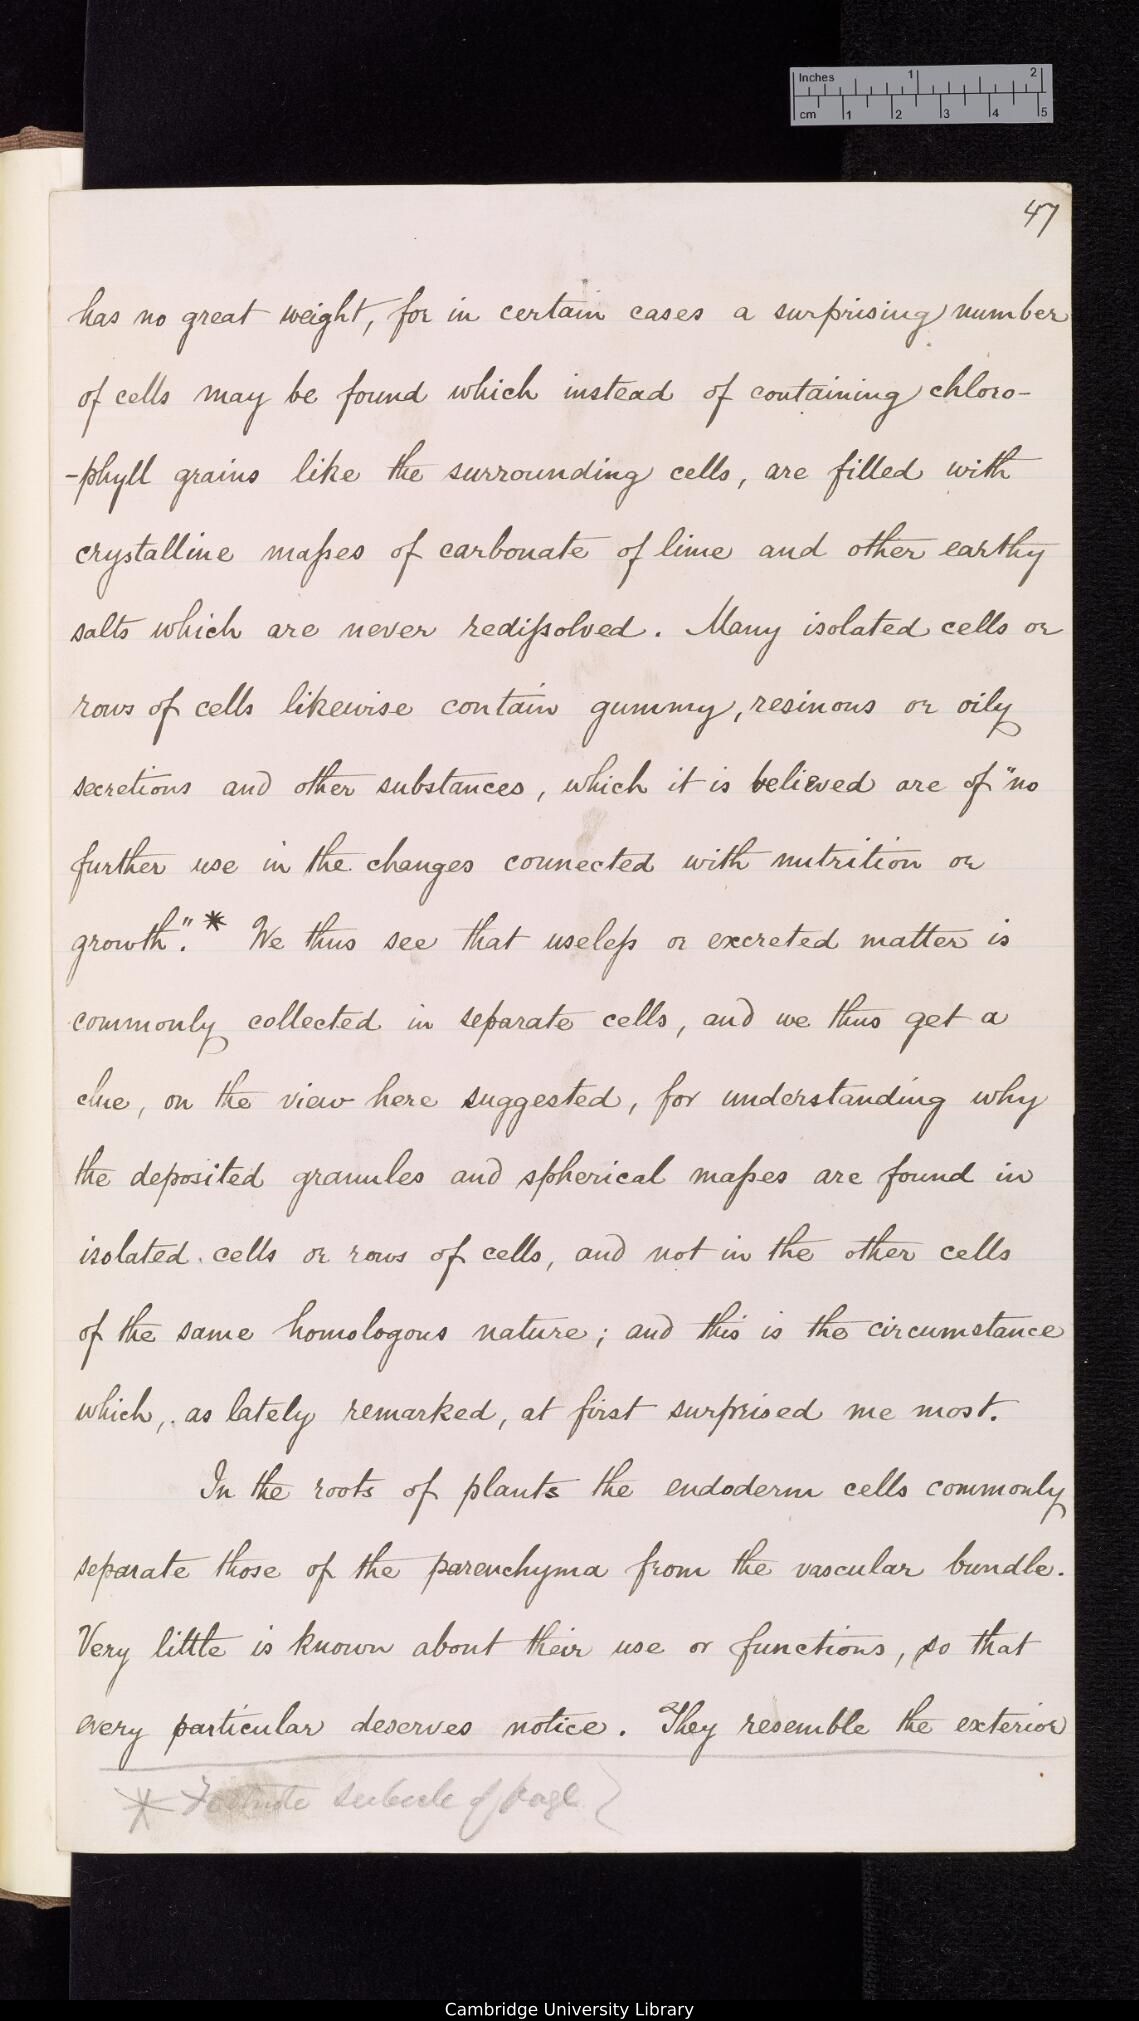 Inches 1 2
cm 1 2 3 4 5
47
has no great weight, for in certain cases a surprising number
of cells may be found which instead of containing chloro-
-phyll grains like the surrounding cells, are filled with
crystalline maſses of carbonate of lime and other earthy
salts which are never rediſsolved. Many isolated cells or
rows of cells likewise contain gummy, resinous or oily
secretions and other substances, which it is believed are of "no
further use in the changes connected with nutrition or
growth".* We thus see that useleſs or excreted matter is
commonly collected in separate cells, and we thus get a
clue, on the view here suggested, for understanding why
the deposited granules and spherical maſses are found in
isolated cells or rows of cells, and not in the other cells
of the same homologous nature; and this is the circumstance
which, as lately remarked, at first surprised me most.
In the roots of plants the endoderm cells commonly
separate those of the parenchyma from the vascular bundle.
Very little is known about their use or functions, so that
every particular deserves notice. They resemble the exterior
* Footnote of page
Cambridge University Library